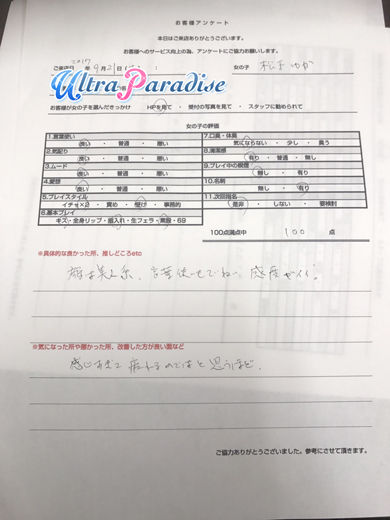 お客様アンケート
本日はご来店ありがとうございます。
お客様へのサービス向上の為、アンケートにご協力お願いします。
ご来店日 2017年 9月21日
女の子 松本ゆか
Ultra Paradise
お客様が女の子を選んだきっかけ HPを見て ・ 受付の写真を見て ・ スタッフに勧められて
女の子の評価
1.言葉使い
良い ・ 普通 ・ 悪い
2.気配り
良い ・ 普通 ・ 悪い
3.ムード
良い ・ 普通 ・ 悪い
4.愛想
良い ・ 普通 ・ 悪い
5.プレイスタイル
イチャ×2 ・ 責め ・ 受け ・ 事務的
6.基本プレイ
キス・全身リップ・指入れ・生フェラ・素股・69
7.口臭・体臭
気にならない ・ 少し ・ 臭う
8.清潔感
有り ・ 普通 ・ 無し
9.プレイ中の喫煙
無し ・ 有り
10.名刺
無し ・ 有り
11.次回指名
是非 ・ しない ・ 要検討
100点満点中 100 点
※具体的な良かった所、推しどころetc
顔は美人系、言葉使いもていねい、感度がイイ。
※気になった所や悪かった所、改善した方が良い面など
感じすぎて疲れるのではと思うほど。
ご協力ありがとうございました。参考にさせて頂きます。